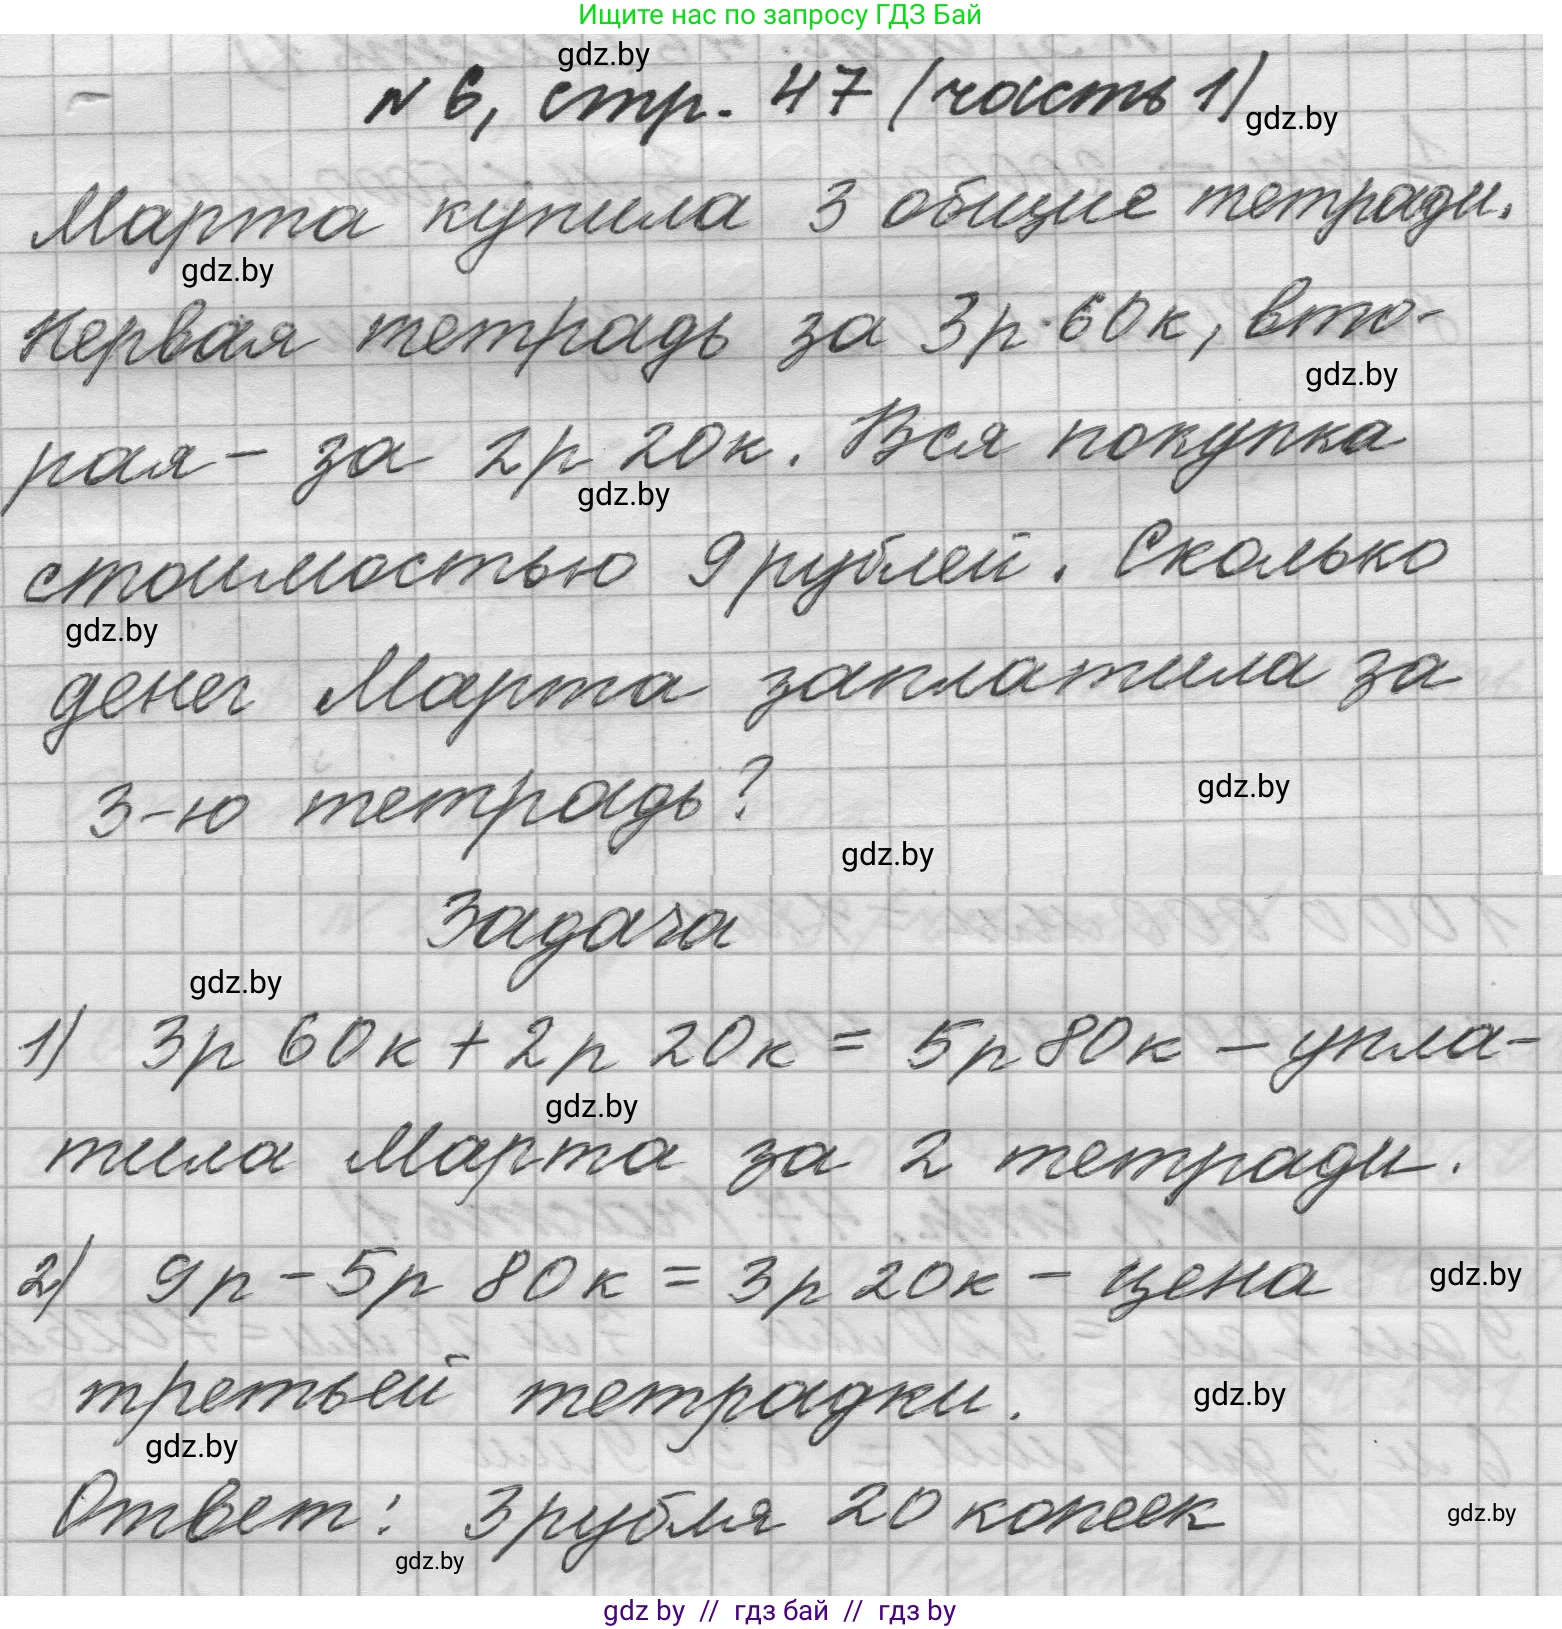 Ищите нас по запросу ГДЗ Бай
gdz.by
№ 6, стр. 47 (часть 1)
gdz.by
Марта купила 3 общие тетради.
gdz.by
Первая тетрадь за 3р 60к, вто-
gdz.by
рая - за 2р 20к. Вся покупка
gdz.by
стоимостью 9 рублей. Сколько
gdz.by
денег Марта заплатила за
3-ю тетрадь?
gdz.by
gdz.by
Задача
gdz.by
1) 3р 60к + 2р 20к = 5р 80к - упла-
gdz.by
тила Марта за 2 тетради.
2) 9р - 5р 80к = 3р 20к - цена
gdz.by
третьей тетрадки.
gdz.by
gdz.by
Ответ: 3 рубля 20 копеек
gdz.by
gdz.by
gdz by // гдз бай // gdz by